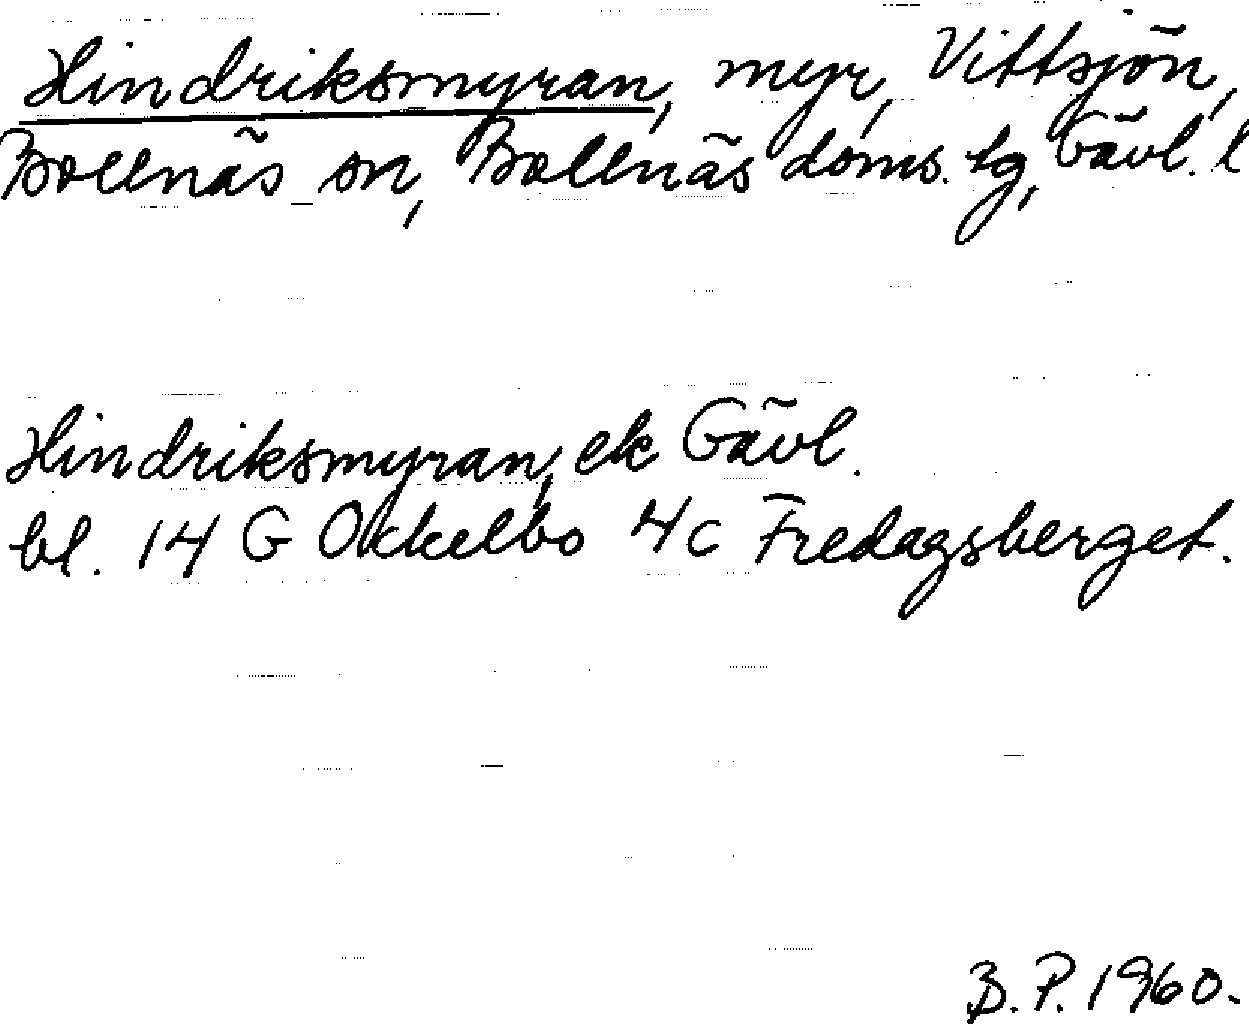 Hindriksmyran, myr, Vittsjön,
Bollnäs sn, Bollnäs doms. tg, Gävl. l
Hindriksmyran, ek Gävl.
bl. 14 G Ockelbo 4c Fredagsberget.
B.P. 1960.